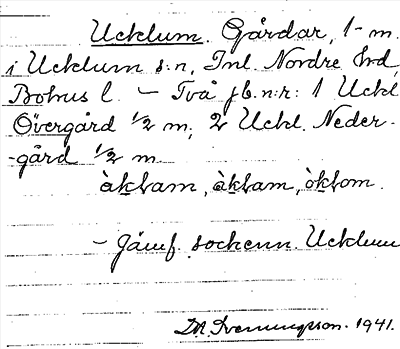 Ucklum. Gårdar, 1 m.
i Ucklum s:n, Inl. Nordre hd,
Bohus l. – Två jb.n:r: 1 Uckl.
Övergård 1/2 m; 2 Uckl. Neder-
-gård 1/2 m.
àkłam, àkłam, òkłom.
– Jämf. sockenn. Ucklum
M. Svenungsson. 1941.